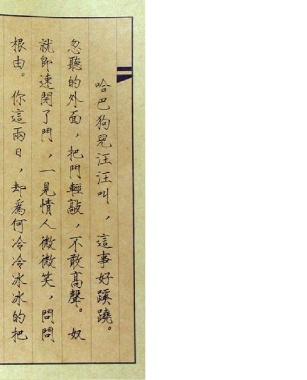 哈巴狗兒汪汪叫，這事好蹊蹺。
忽聽的外面，把門輕敲，不敢高聲。奴
就即速開了門，一見情人微微笑，問問
根由。你這兩日，却爲何冷冷冰冰的把